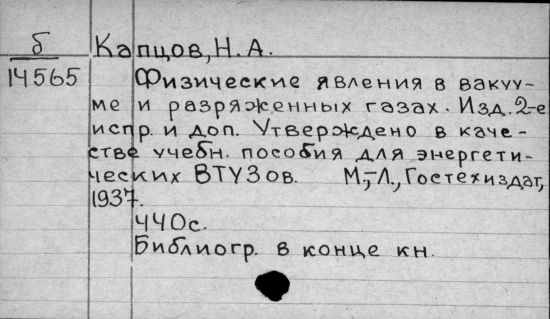 б Капцов, Н. А.
14565 Физические явления в вакуу-
ме и разряженных газах. Изд. 2-е
испр. и доп. Утверждено в каче-
стве учебн. пособия для энергети-
ческих ВТУЗов. М.-Л., Гостехиздат,
1937.
440с.
Библиогр. в конце кн.